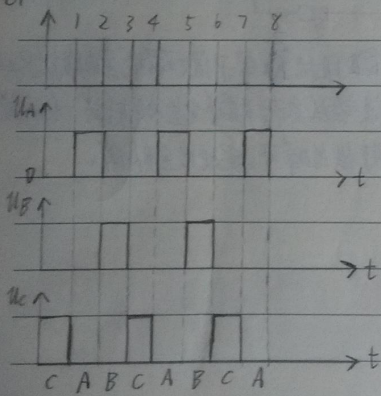 1 2 3 4 5 6 7 8
UA
0 t
UB
t
UC
t
C A B C A B C A